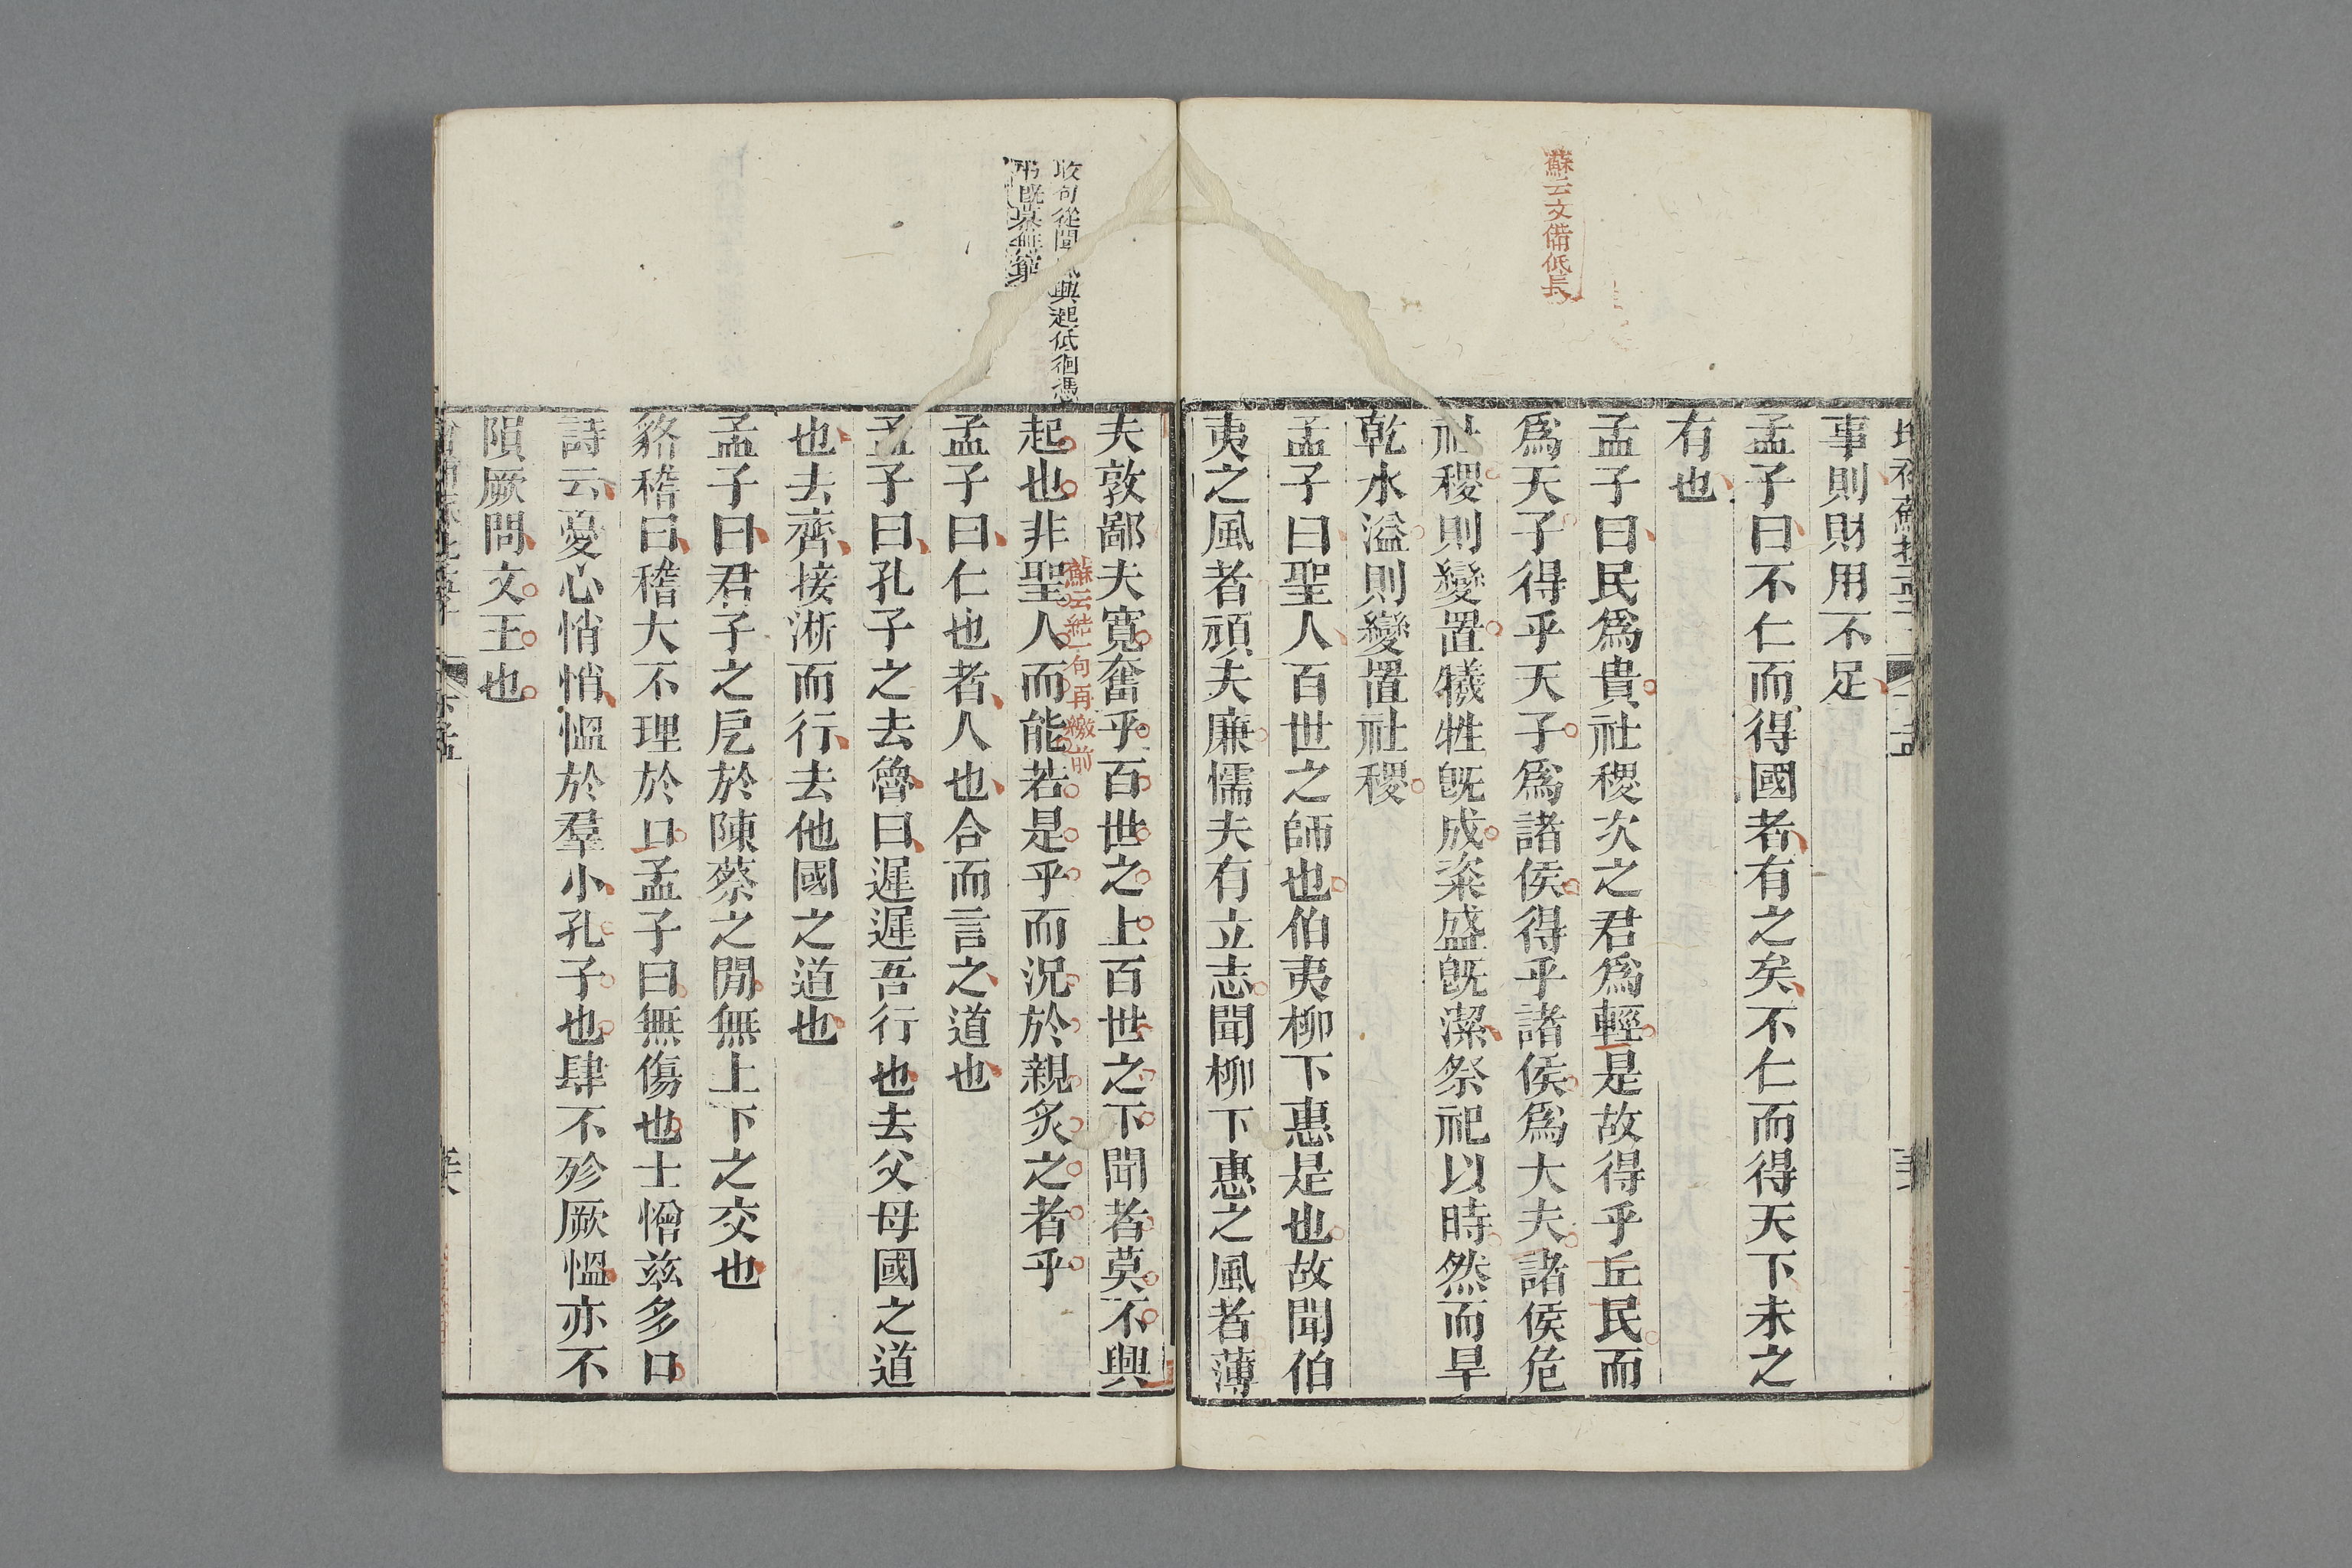 蘇云文備低長
事則財用不足
孟子曰不仁而得國者有之矣不仁而得天下未之
有也
孟子曰民爲貴社稷次之君爲輕是故得乎丘民而
爲天子得乎天子爲諸侯得乎諸侯爲大夫諸侯危
社稷則變置犧牲旣成粢盛旣潔祭祀以時然而旱
乾水溢則變置社稷
孟子曰聖人百世之師也伯夷柳下惠是也故聞伯
夷之風者頑夫廉懦夫有立志聞柳下惠之風者薄
收句從聞風興起低徊憑
弔旣慕無窮
夫敦鄙夫寬奮乎百世之上百世之下聞者莫不興
蘇云結一句再繳前
起也非聖人而能若是乎而況於親炙之者乎
孟子曰仁也者人也合而言之道也
孟子曰孔子之去魯曰遲遲吾行也去父母國之道
也去齊接淅而行去他國之道也
孟子曰君子之戹於陳蔡之閒無上下之交也
貉稽曰稽大不理於口孟子曰無傷也士憎茲多口
詩云憂心悄悄慍於羣小孔子也肆不殄厥慍亦不
隕厥問文王也